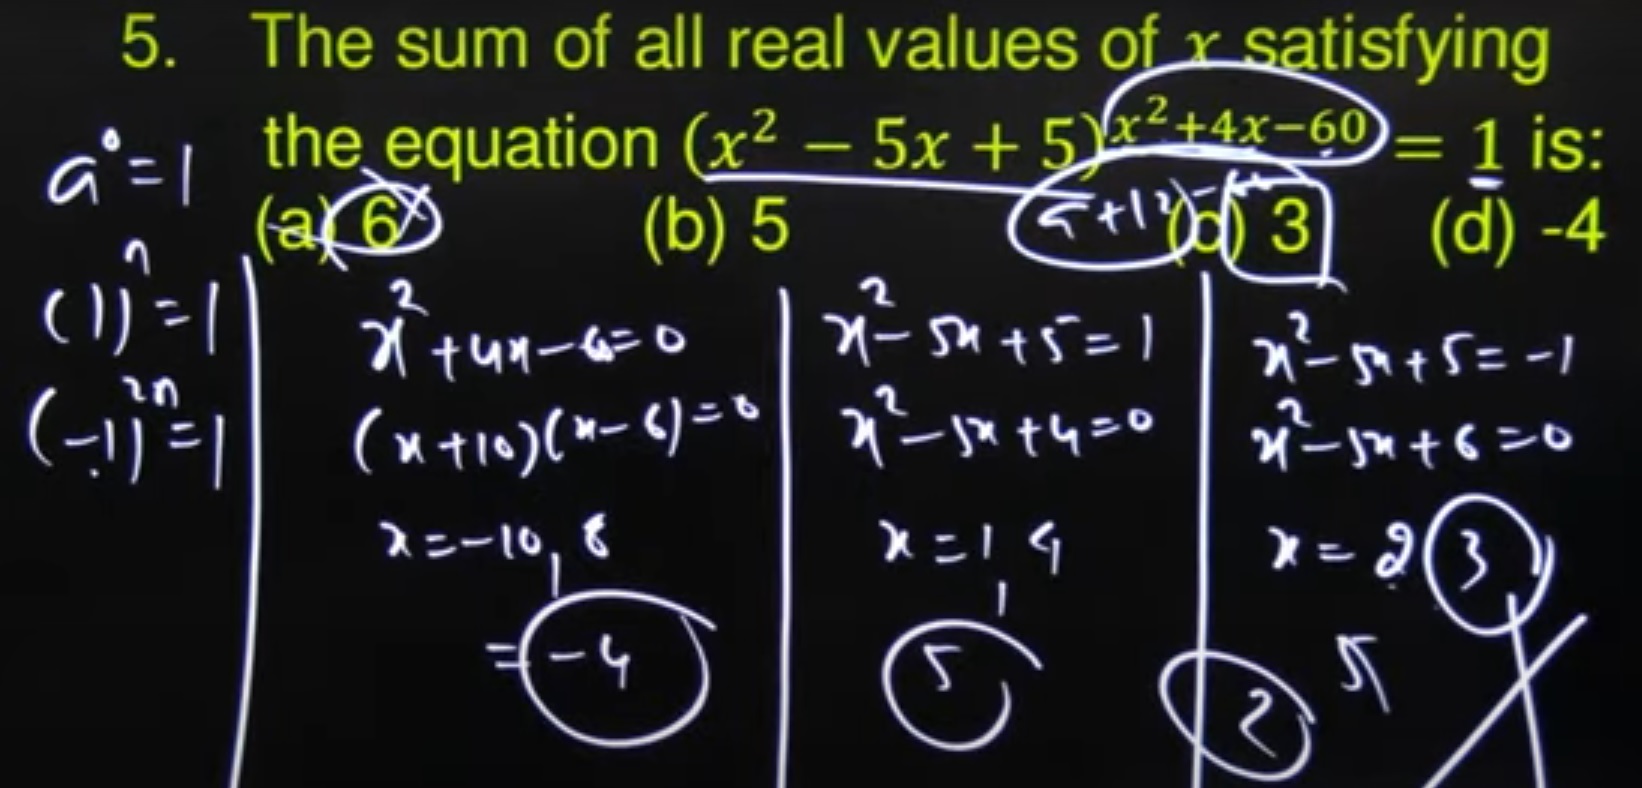 5. The sum of all real values of x satisfying
the equation (x² − 5x + 5)^(x²+4x−60) = 1 is:
(a) 6 (b) 5 (c) 3 (d) -4
a⁰ = 1
(1)ⁿ = 1
(-1)²ⁿ = 1
x² + 4x - 60 = 0
(x+10)(x-6) = 0
x = -10, 6
= -4
x² - 5x + 5 = 1
x² - 5x + 4 = 0
x = 1, 4
5
x² - 5x + 5 = -1
x² - 5x + 6 = 0
x = 2, 3
5
2